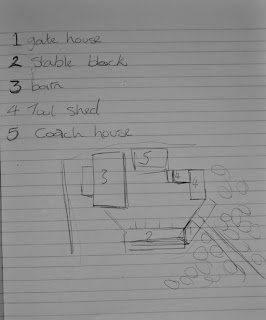 1 gate house
2 Stable block
3 barn
4 Tool shed
5 Coach house
5
3
4
4
2